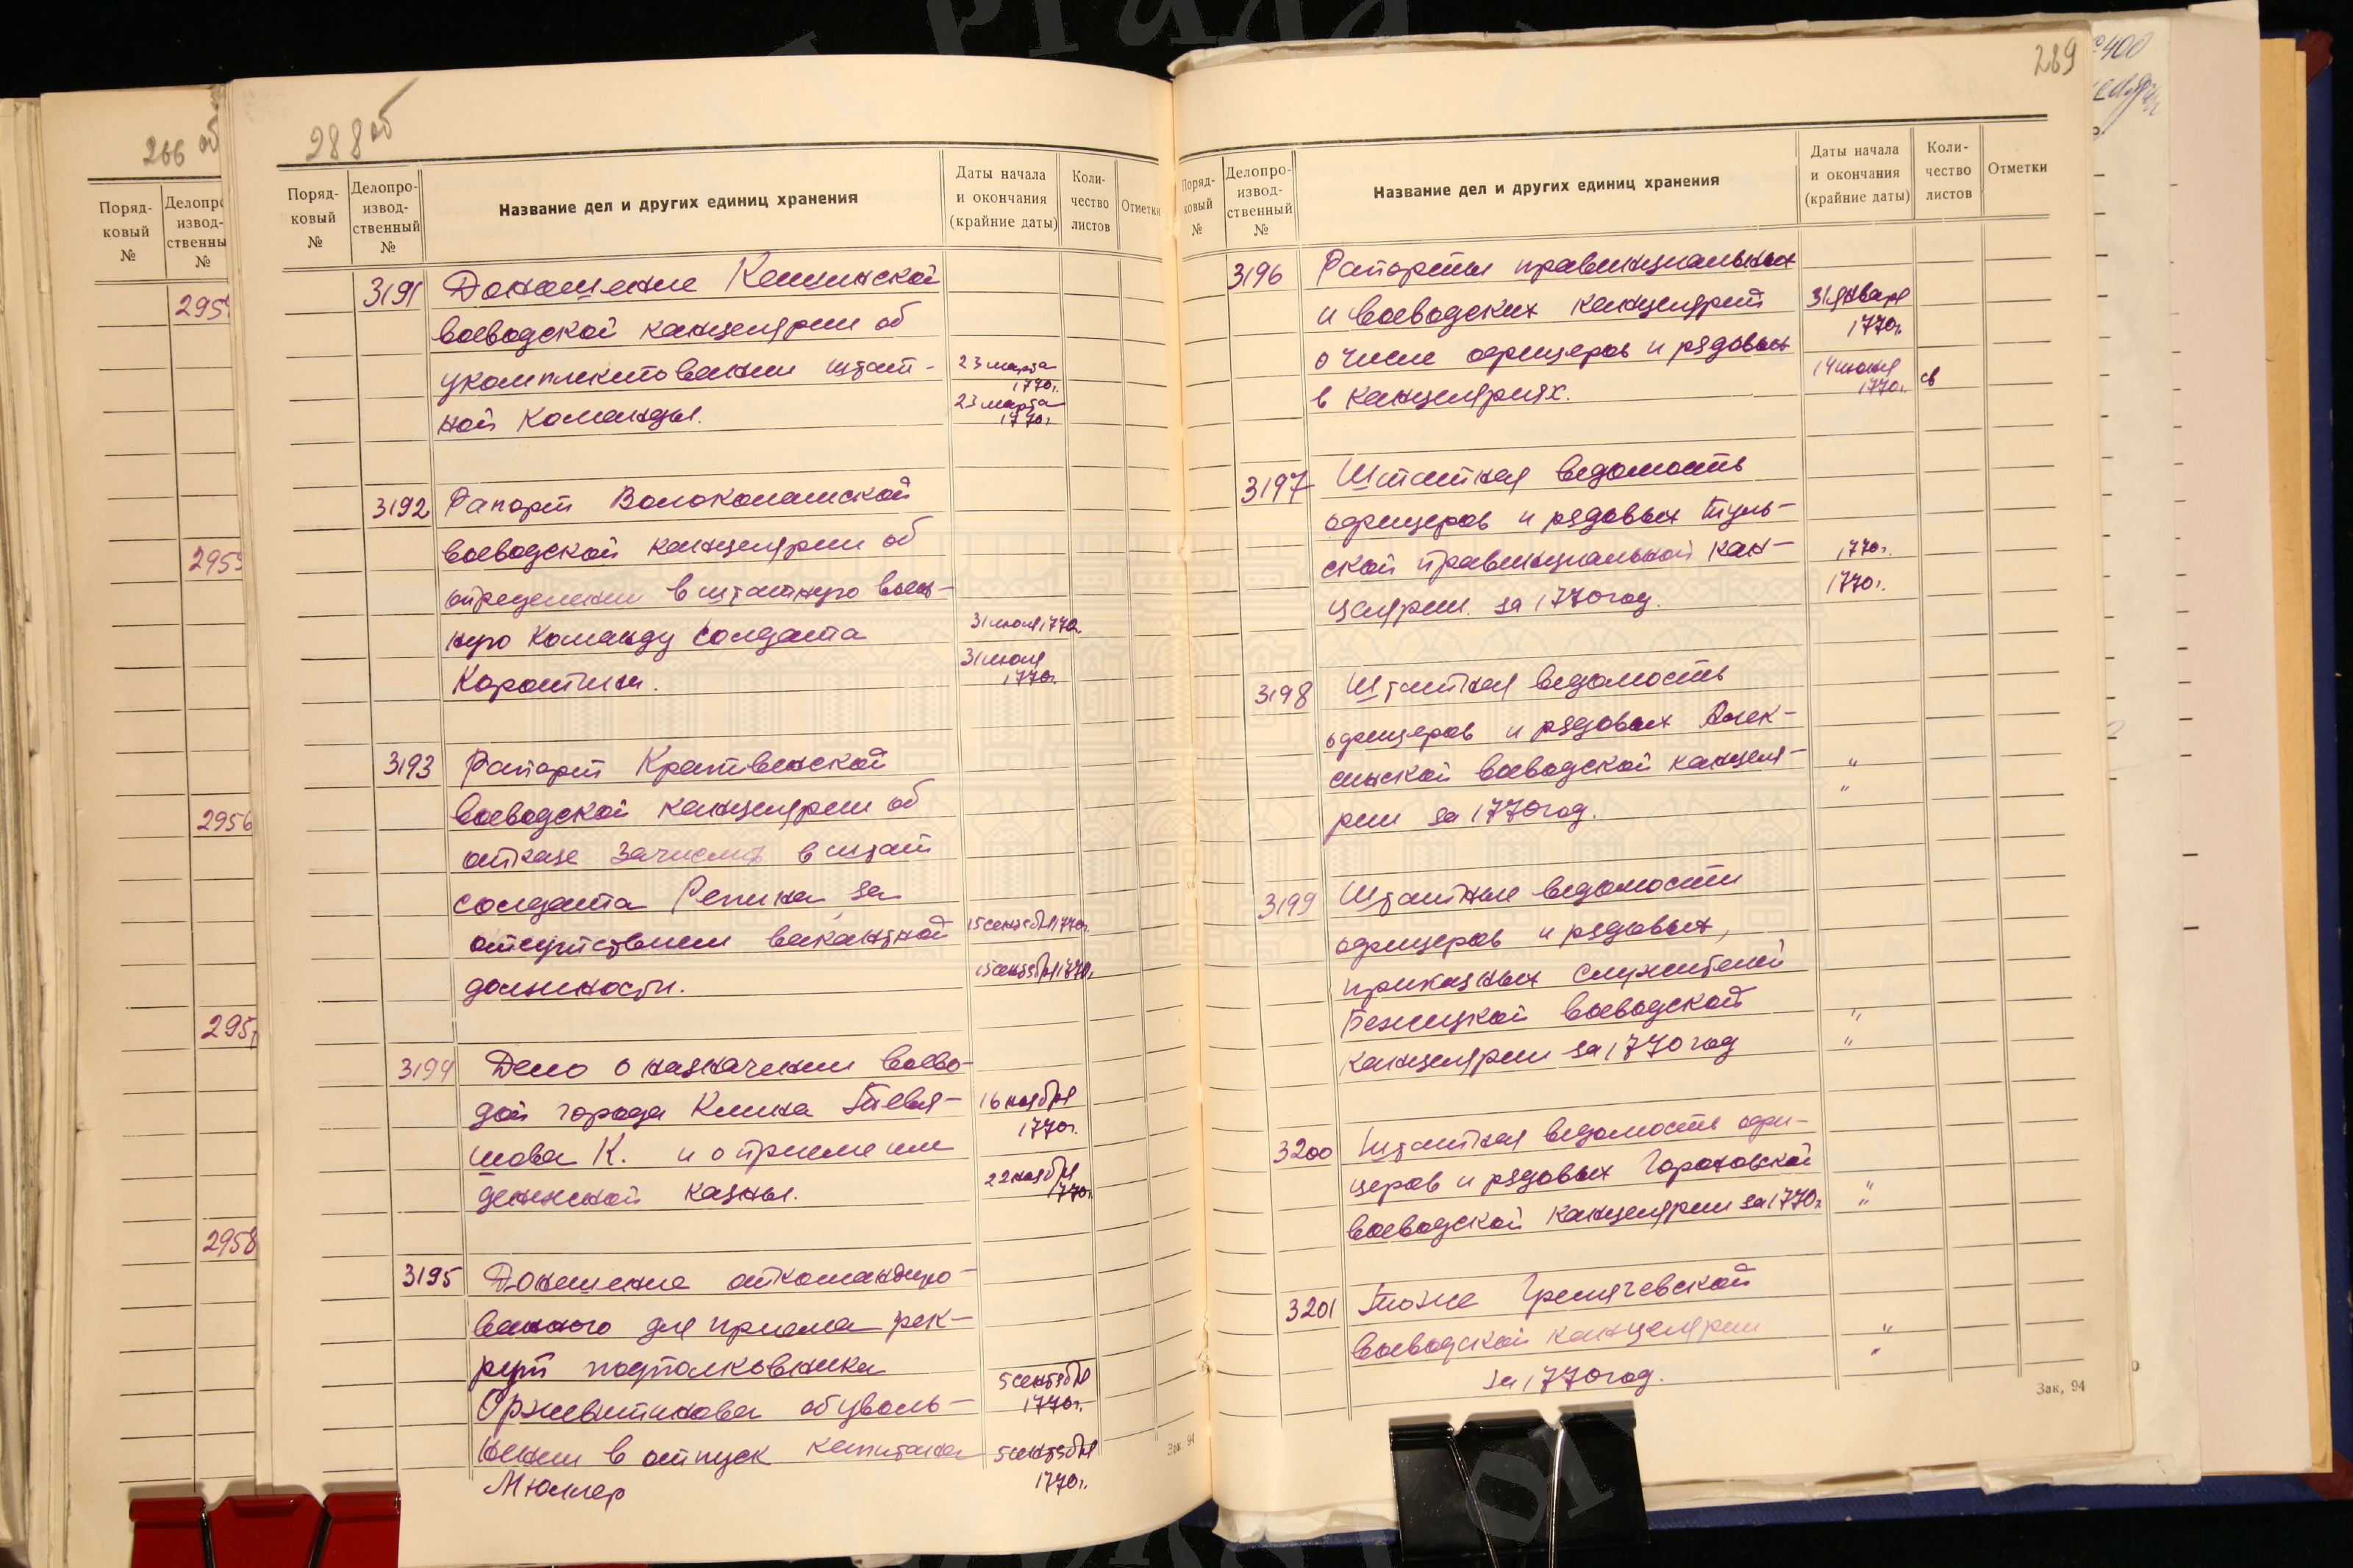 266 об
Поряд-
ковый
№
Делопро
извод-
ственны
№
295
295
2956
295
2958
288 об
Поряд-
ковый
№
Делопро-
извод-
ственный
№
Название дел и других единиц хранения
Даты начала
и окончания
(крайние даты)
Коли-
чество
листов
Отметки
3191 Доношение Кашинской
воеводской канцелярии об
укомплектовании штат- 23 марта
1770г.
ной команды. 23 марта
1770г.
3192 Рапорт Волоколамской
воеводской канцелярии об
определении в штатную воен-
ную команду солдата 31 июля 1770г.
31 июля
1770г.
3193 Рапорт Крапивенской
воеводской канцелярии об
отказе зачислить в штат
солдата Репина за
отсутствием вакантной 15 сентября 1770г.
должности. 15 сентября 1770г.
3194 Дело о назначении воево-
дой города Клина Тевя- 16 ноября
1770г.
шова К. и о приеме им
денежной казны. 22 ноября
1770г.
3195 Доношение откомандиро-
ванного для приема рек-
рут подполковника
Оржевитинова об уволь- 5 сентября
1770г.
нении в отпуск капитана 5 сентября
1770г.
Мюллер
Зак. 94
289
Поряд-
ковый
№
Делопро-
извод-
ственный
№
Название дел и других единиц хранения
Даты начала
и окончания
(крайние даты)
Коли-
чество
листов
Отметки
3196 Рапорты провинциальных
и воеводских канцелярий 31 января
1770г.
о числе офицеров и рядовых
в канцеляриях. 14 июня
1770г. св
3197 Штатная ведомость
офицеров и рядовых Туль-
ской провинциальной кан- 1770г.
целярии за 1770 год. 1770г.
3198 Штатная ведомость
офицеров и рядовых Алек-
синской воеводской канцеля- "
рии за 1770 год. "
3199 Штатные ведомости
офицеров и рядовых,
приказных служителей
Бежецкой воеводской "
канцелярии за 1770 год "
3200 Штатная ведомость офи-
церов и рядовых Гороховской "
воеводской канцелярии за 1770г. "
3201 Тоже Гремячевской
воеводской канцелярии "
за 1770 год. "
Зак. 94